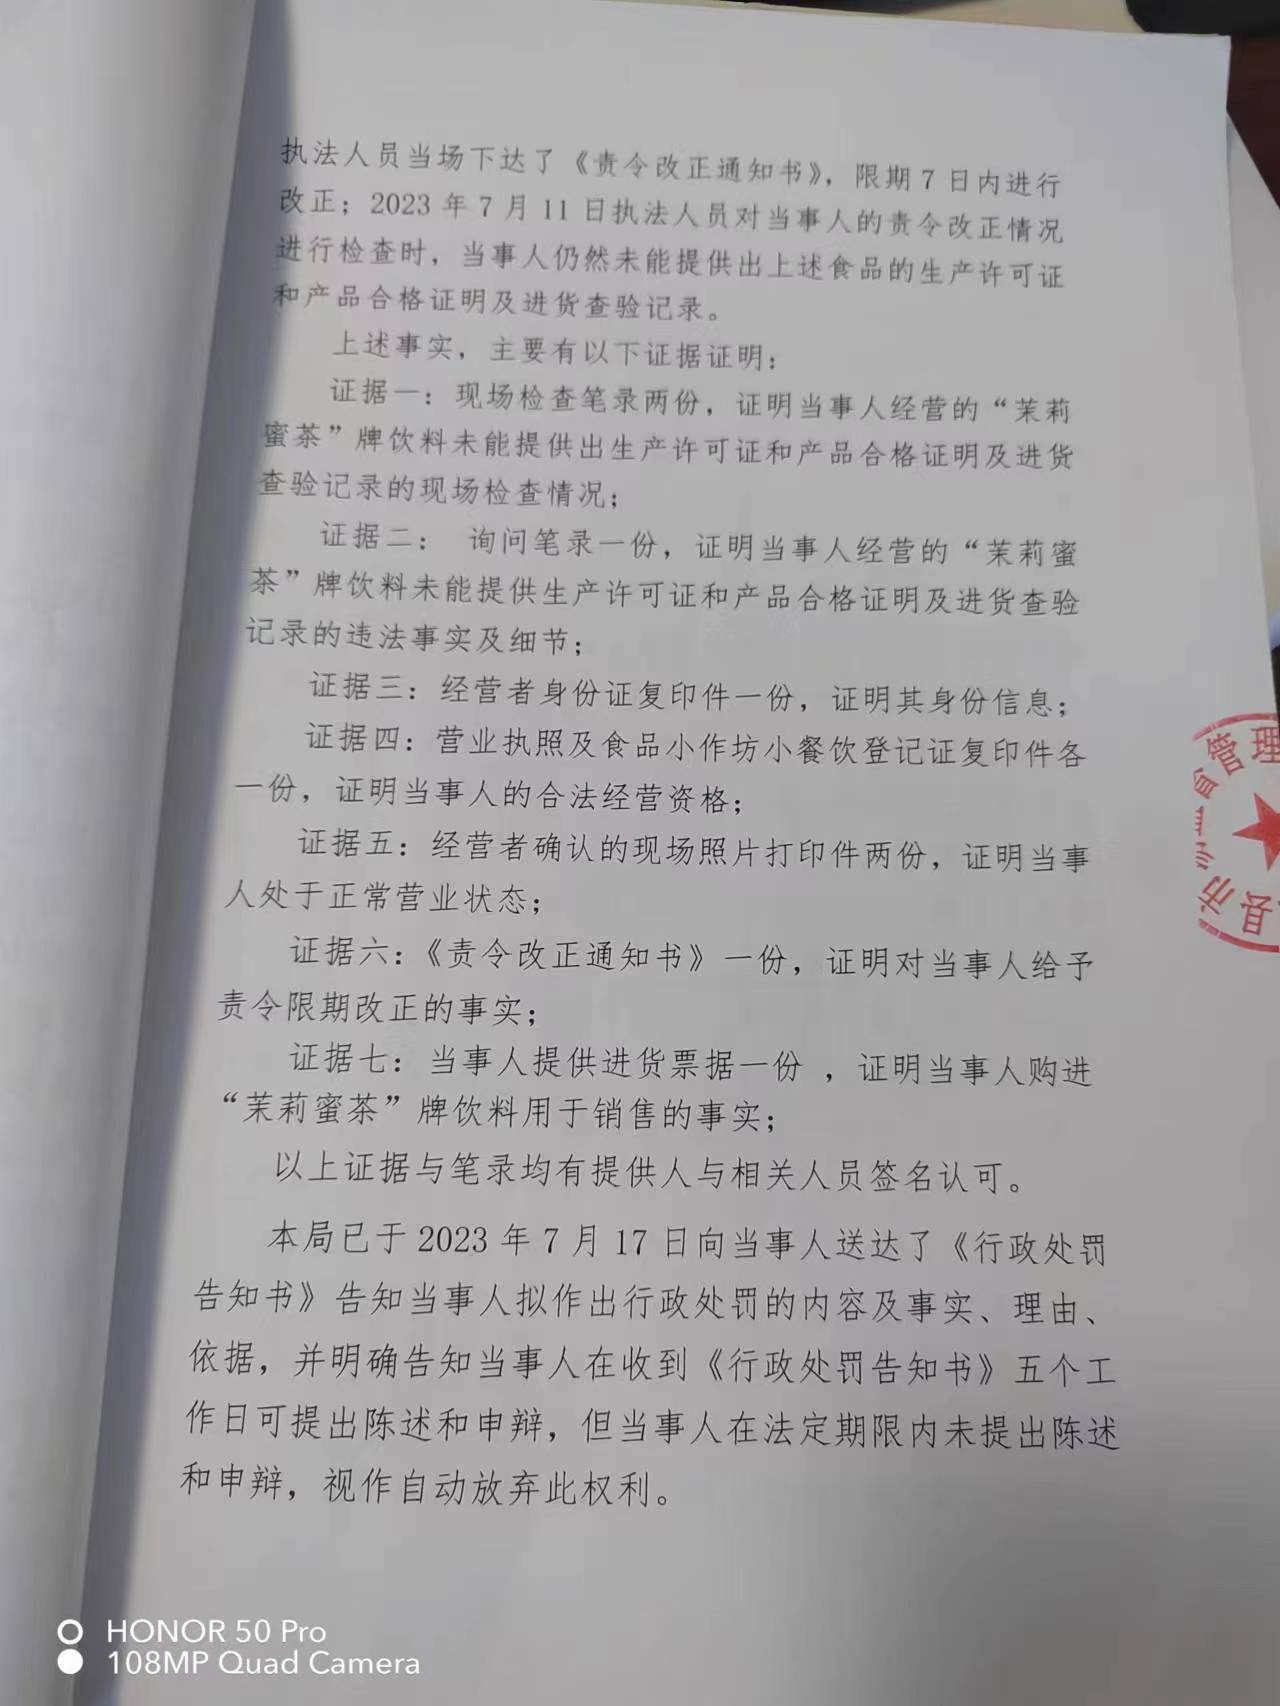 执法人员当场下达了《责令改正通知书》，限期7日内进行
改正；2023年7月11日执法人员对当事人的责令改正情况
进行检查时，当事人仍然未能提供出上述食品的生产许可证
和产品合格证明及进货查验记录。
上述事实，主要有以下证据证明：
证据一：现场检查笔录两份，证明当事人经营的“茉莉
蜜茶”牌饮料未能提供出生产许可证和产品合格证明及进货
查验记录的现场检查情况；
证据二： 询问笔录一份，证明当事人经营的“茉莉蜜
茶”牌饮料未能提供生产许可证和产品合格证明及进货查验
记录的违法事实及细节；
证据三：经营者身份证复印件一份，证明其身份信息；
证据四：营业执照及食品小作坊小餐饮登记证复印件各
一份，证明当事人的合法经营资格；
证据五：经营者确认的现场照片打印件两份，证明当事
人处于正常营业状态；
证据六：《责令改正通知书》一份，证明对当事人给予
责令限期改正的事实；
证据七：当事人提供进货票据一份 ，证明当事人购进
“茉莉蜜茶”牌饮料用于销售的事实；
以上证据与笔录均有提供人与相关人员签名认可。
本局已于2023年7月17日向当事人送达了《行政处罚
告知书》告知当事人拟作出行政处罚的内容及事实、理由、
依据，并明确告知当事人在收到《行政处罚告知书》五个工
作日可提出陈述和申辩，但当事人在法定期限内未提出陈述
和申辩，视作自动放弃此权利。
县市
督管理
HONOR 50 Pro
108MP Quad Camera